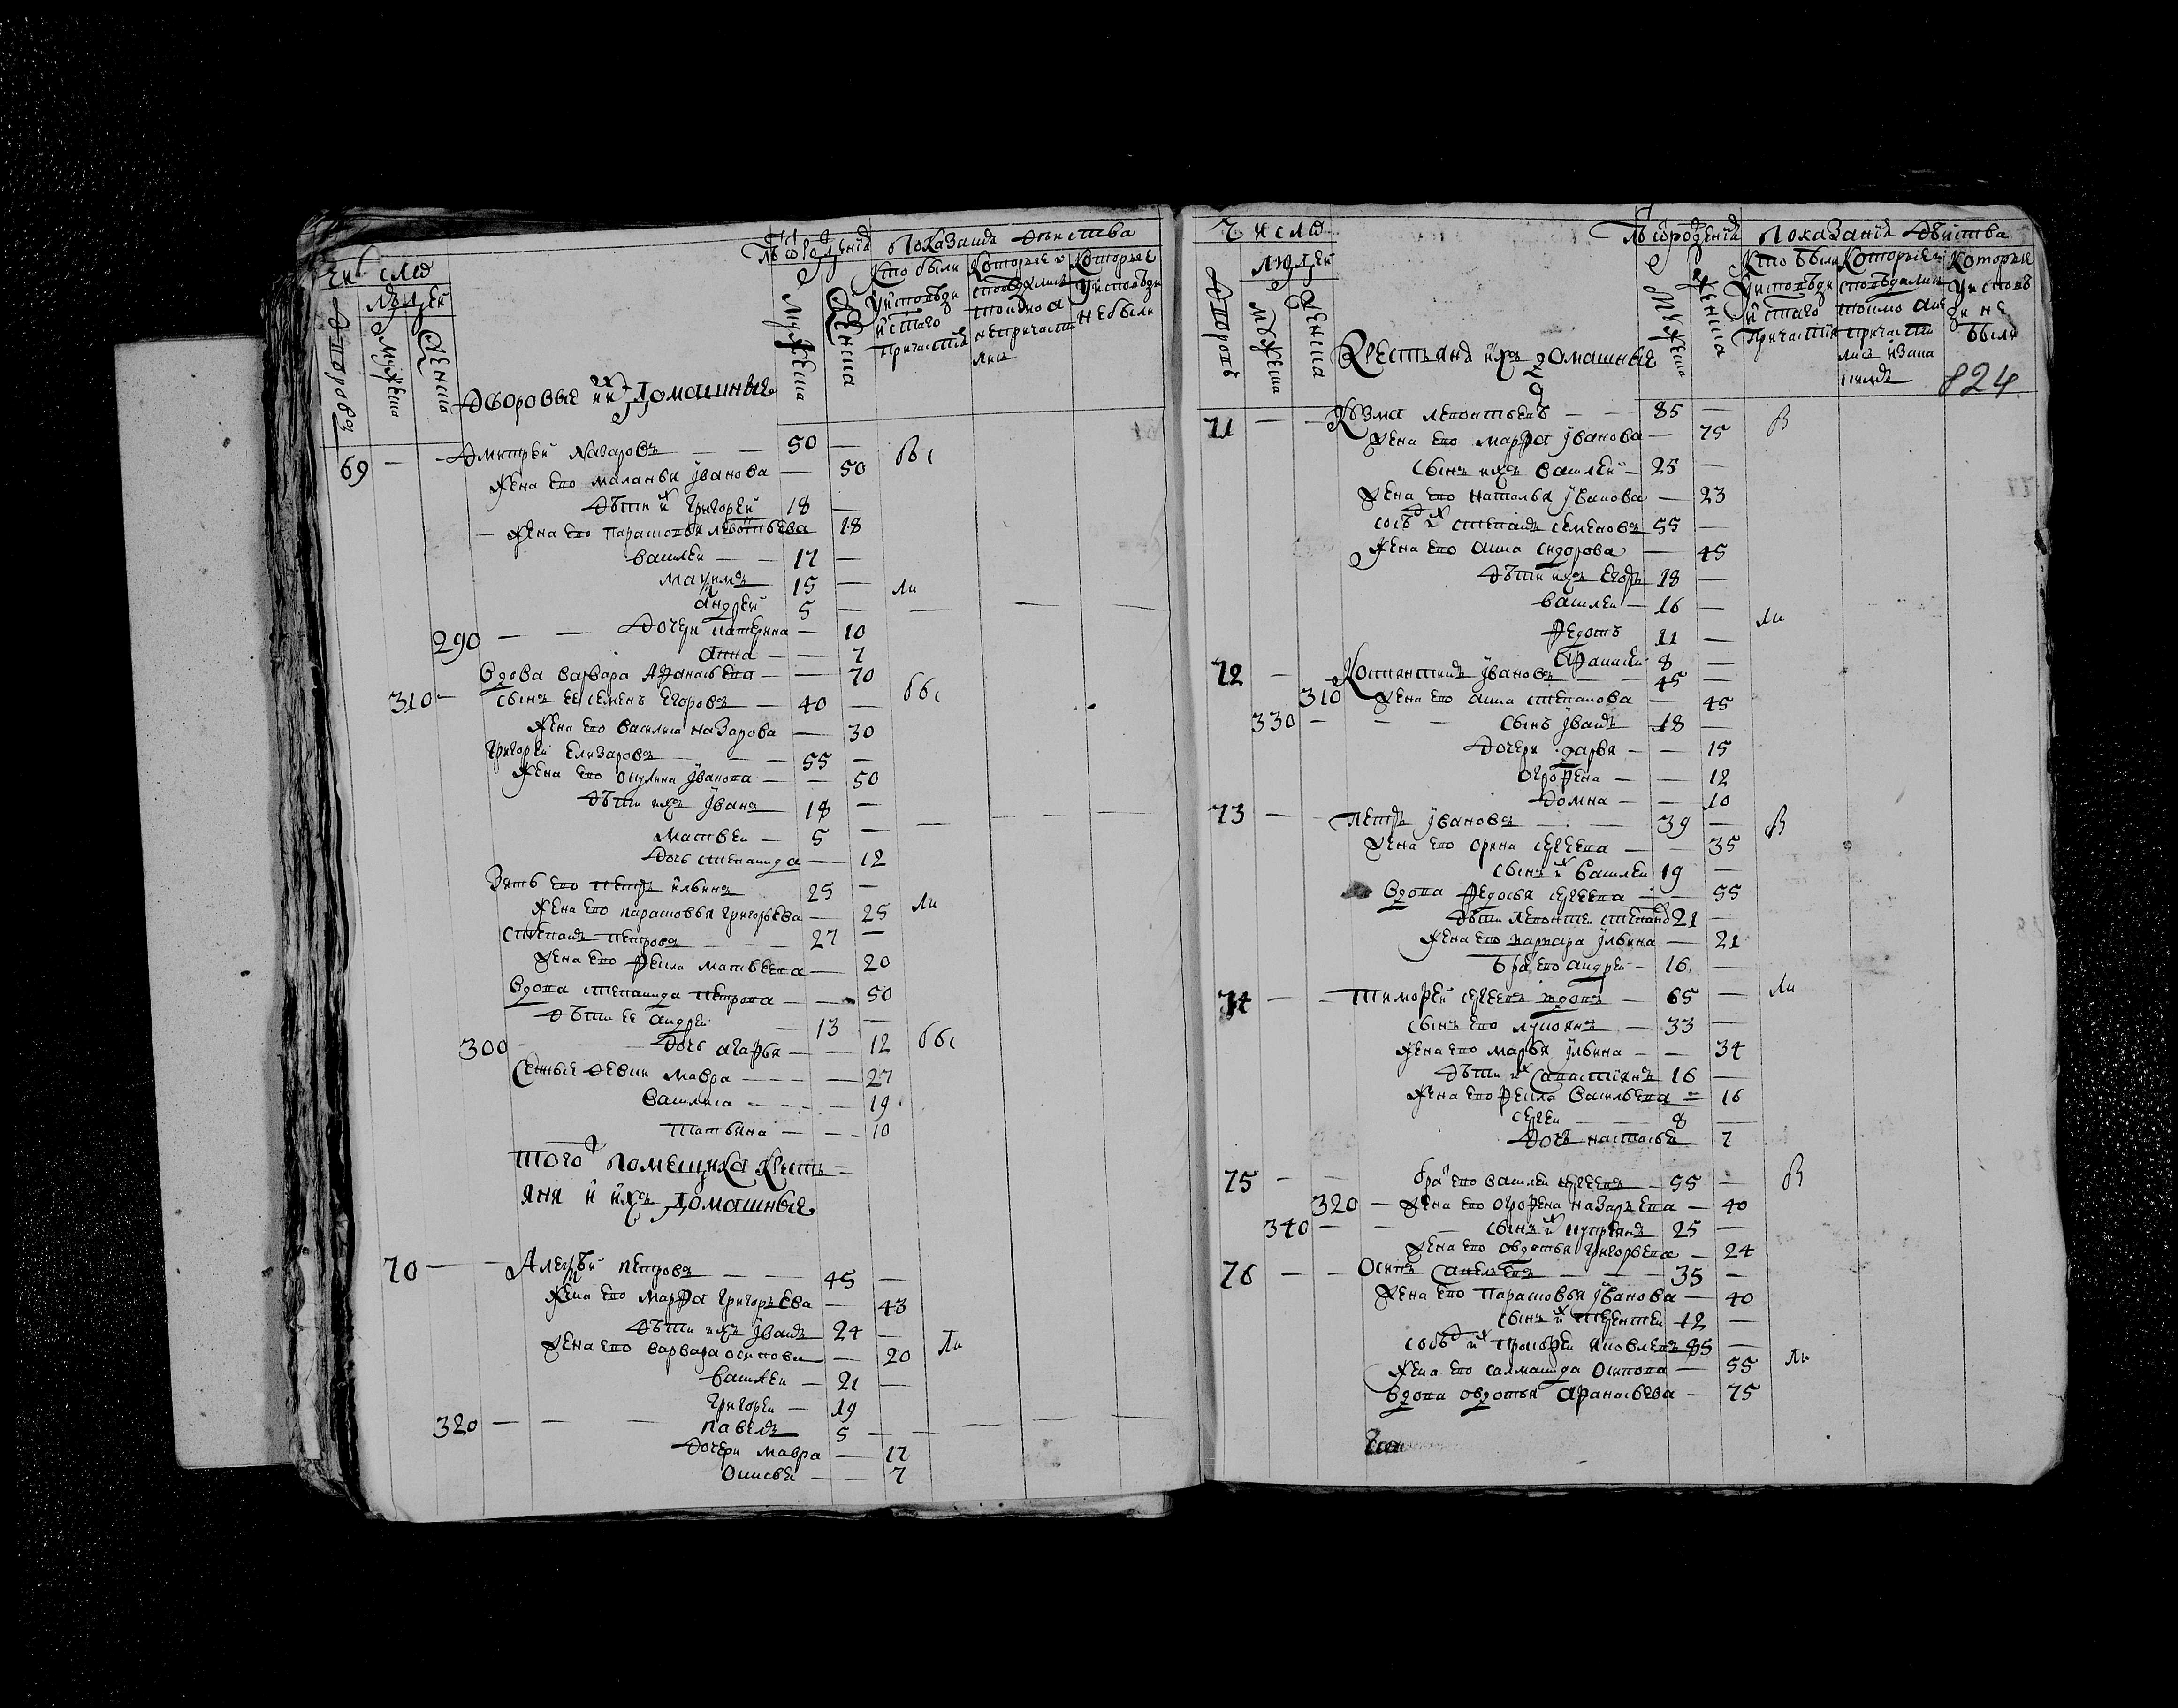 Число
людей
Дворовъ
Мужеска
Женска
Дворовые и ихъ домашные
Лѣ ѿ рожденія
Мужеска
Женска
Показание дѣиства
Кто были у исповѣди и с͠таго причастия
Которые исповѣдались токмо а не причастились
Которые у исповѣди не были
69 — — Дмитреи Макаровъ — — 50 — вы
Жена ево Маланья Иванова — 50
дѣти их Григореи 18 —
Жена ево Парасковья Левонтьева 18
Василеи — — 17 —
Максимъ 15 —
Андреи 5 — ли — — —
290 — — Дочери Катерина — 10
Анна — — 7
Вдова Варвара Афанасьева — — 70
310 — Сынъ ее Семенъ Егоровъ — 40 — бы
Жена ево Василиса Назарова — 30
Григореи Елизаровъ — — 55 —
Жена ево Окулина Иванова — — 50
дѣти ихъ Иванъ 18 —
Матвеи — 5 — — — — —
Дочь Степанида — 12
Зять ево Петръ Ильинъ 25 —
Жена ево Парасковья Григорьева — 25 ли
Степанъ Петровъ — — — 27 —
Жена ево Фекла Матвеева — 20
Вдова Степанида Петрова — — 50
дѣти ее Андреи — 13 —
300 — Дочь Агафья — — 12 бы
Мавра — — — 27
Василиса — — — 19
Татьяна — — — 10
того помещика кресть=
яня и ихъ домашные
70 — — Алексѣи Петровъ — — 45 —
Жена ево Марфа Григорьева — 43
дѣти ихъ Иванъ 24 —
Жена ево Варвара Осипова — 20 ли
Василеи — 21 —
Григореи — 19
320 — — — Павелъ 5 — — — — —
Дочери Мавра — 17
Онисья — — 7
Число
людей
Дворовъ
Мужеска
Женска
Крестьяня ихъ домашные
Лѣ ѿ рожденія
Мужеска
Женска
Показания дѣиства
Кто были у исповѣди и с͠таго причастия
Которые исповѣдались токмо а не причастились
Которые у исповѣди не были
824
71 — — Кузма Левонтьевъ — — 85 — в
Жена ево Марфа Иванова — 75
Сынъ ихъ Василеи — 25 —
Жена ево Наталья Иванова — 23
Степанъ Семеновъ 55 —
Жена ево Анна Сидорова — 45
дѣти ихъ Егоръ 18 —
Василеи — 16 —
Федотъ 11 — ли
Афанасеи 8 —
72 — Костянтинъ Ивановъ — — 45 —
310 Жена ево Анна Степанова — 45
330 — — — Сынъ Иванъ 18 —
Дочери Дарья — — 15
Огрофена — — 12
Домна — — 10
73 — — Петръ Ивановъ — — 39 — в
Жена ево Орина Сергеева — — 35
Сынъ их Василеи 19 —
Вдова Федосья Сергеева — — 55
дѣти Левонтеи Степанъ 21 —
Жена ево Варвара Ильина — 21
Бра ево Андреи — 16 —
74 — — Тимофеи Сергеевъ вдовъ — 65 — ли
Сынъ ево Лукоянъ — 33 —
Жена ево Марья Ильина — — 34
дѣти их Савастиянъ 16 —
Жена ево Фекла Васильева — 16
Сергеи — — 8 —
Дочь Настасья 7
75 — — Бра ево Василеи Сергеевъ — 55 — в
320 — Жена ево Огрофена Назарьева — 40
340 — — — Сынъ их Куприянъ 25 —
Жена ево Овдотья Григорьева — 24
76 — — Осипъ Савельевъ — — 35 —
Жена ево Парасковья Иванова — 40
Сынъ их Терентеи 12 —
Трофеи Яковлевъ 85 —
Жена ево Саламанида Осипова — 55 ли
Вдова Овдотья Афанасьева — 75